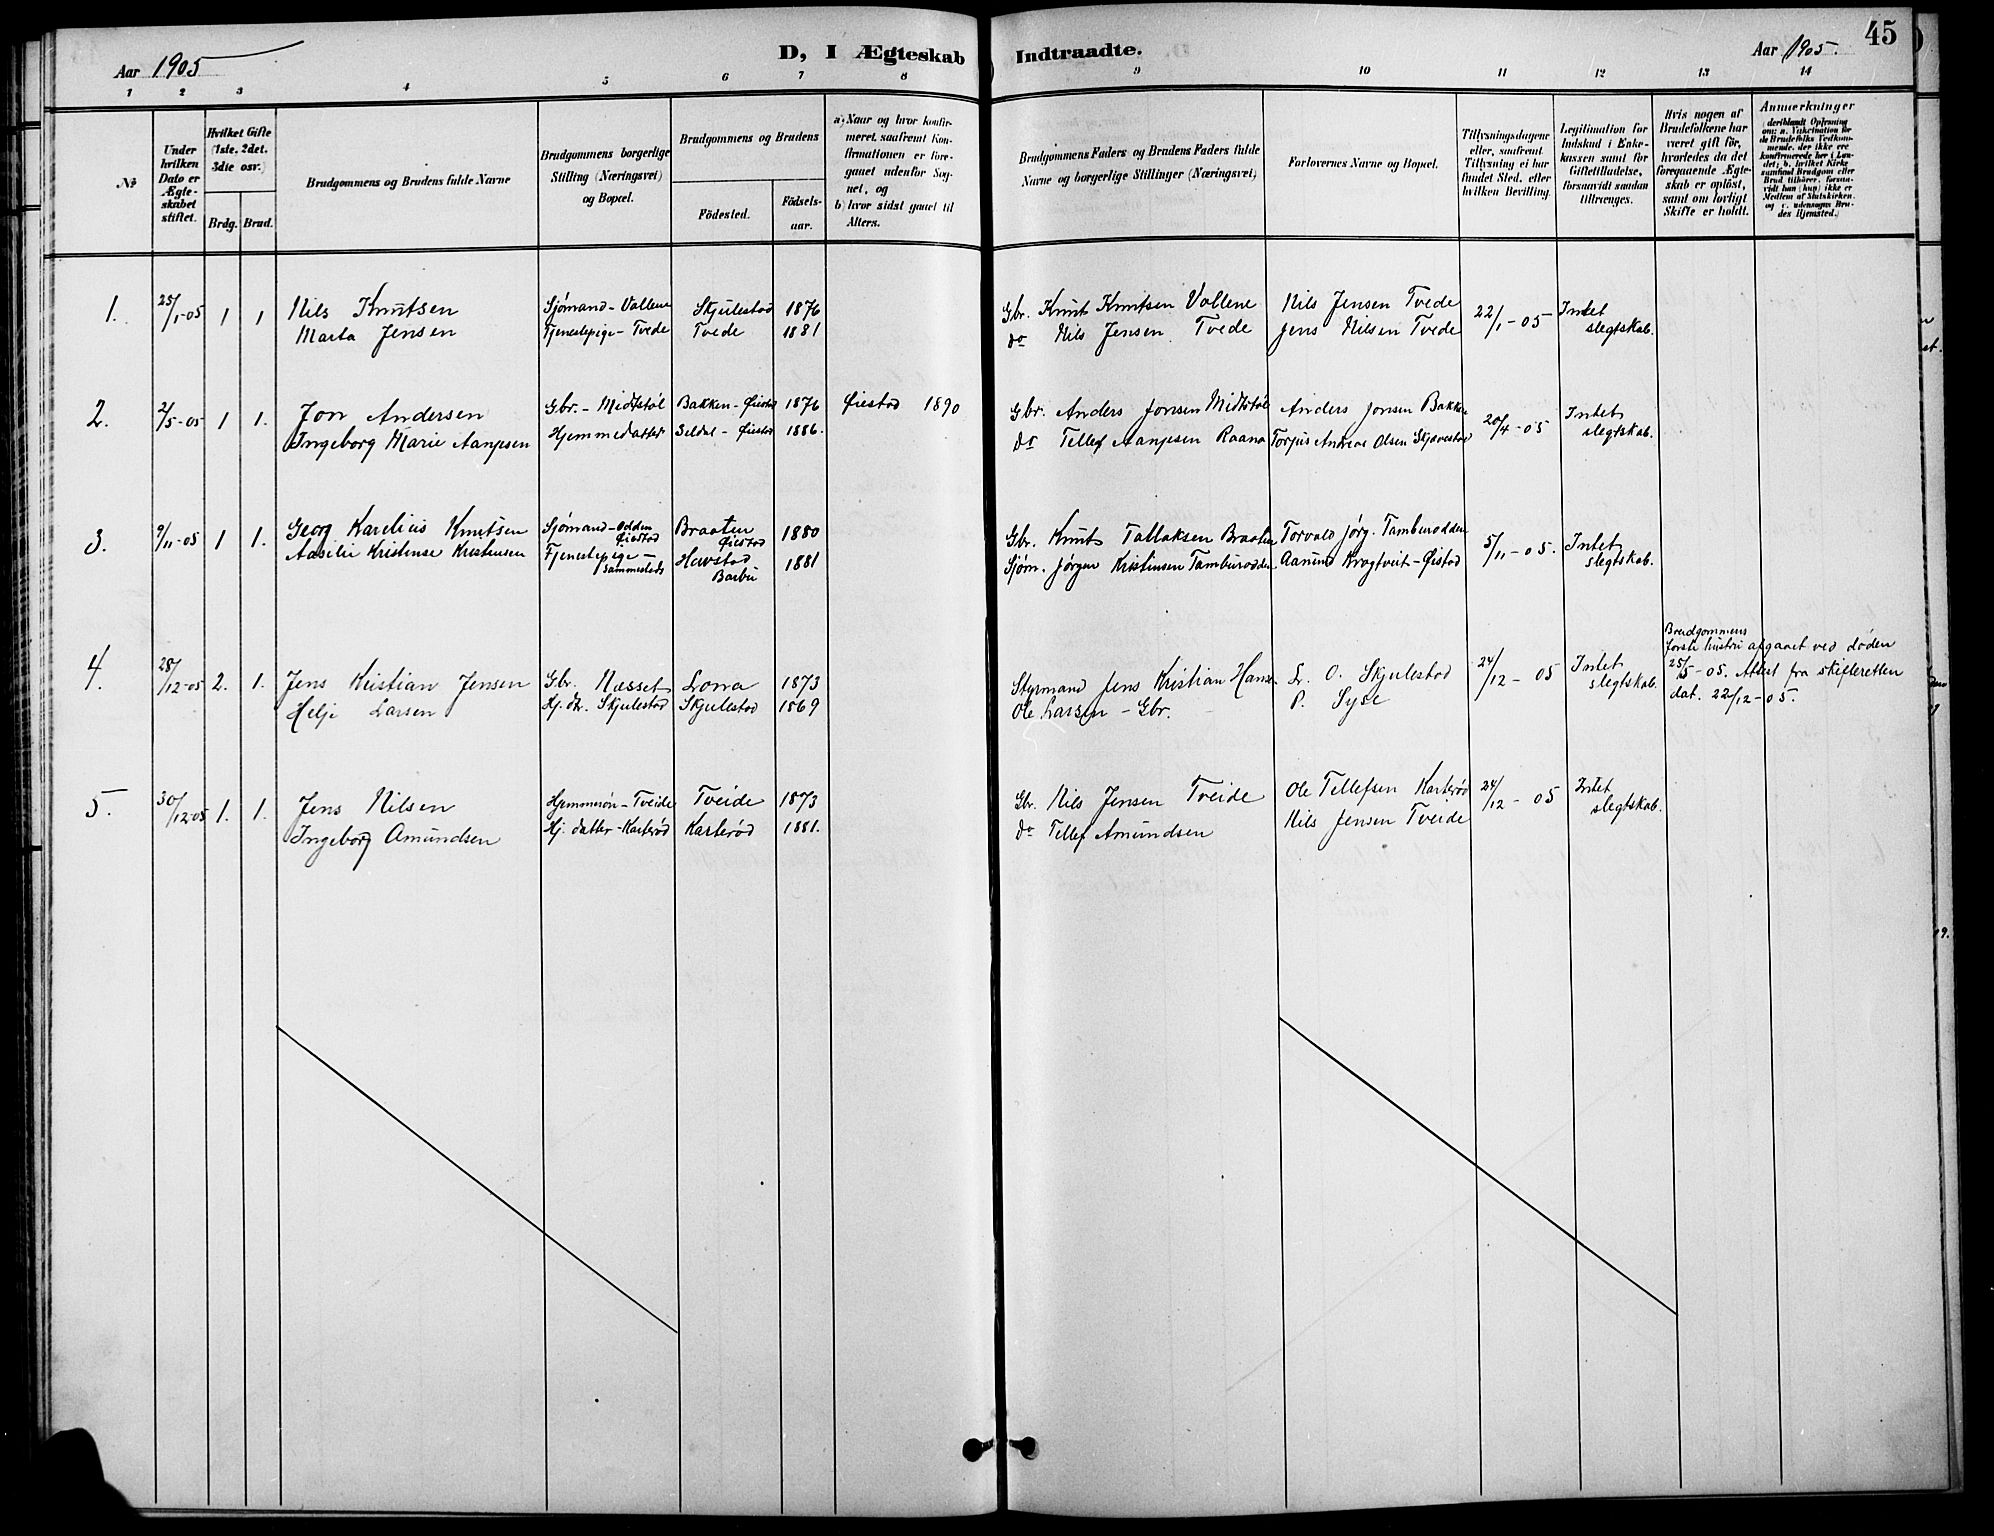 45
D, I Ægteskab Indtraadte.
Aar 1905
Aar 1905.
1 2 3 4 5 6 7 8 9 10 11 12 13 14
No
Under hvilken Dato er Ægteskabet stiftet.
Hvilket Gifte (1ste, 2det, 3die osv.)
Brdg. Brud.
Brudgommens og Brudens fulde Navne
Brudgommens borgerlige Stilling (Næringsvei) og Bopæl.
Brudgommens og Brudens
Födested.
Födsels-aar.
a) Naar og hvor konfirmeret, saafremt Konfirmationen er foregaaet udenfor Sognet, og
b) hvor sidst gaaet til Alters.
Brudgommens Faders og Brudens Faders fulde Navne og borgerlige Stillinger (Næringsvei)
Forlovernes Navne og Bopæl.
Tillysningsdagene eller, saafremt Tillysning ei har fundet Sted, efter hvilken Bevilling.
Legitimation for Indskud i Enkekassen samt for Giftetilladelse, forsaavidt saadan tiltrænges.
Hvis nogen af Brudefolkene har været gift för, hvorledes da det foregaaende Ægteskab er oplöst, samt om lovligt Skifte er holdt.
Anmerkninger
1. 25/1-05 1 1 Nils Knutsen Sjømand - Vollene Skjulestad 1876 Gbr. Knut Knutsen Vollene Nils Jensen Tvede 22/1-05 Intet slegtskab.
Marta Jensen Tjenestepige - Tvede Tvede 1881 do Nils Jensen Tvede Jens Nilsen Tvede
2. 2/5-05 1 1. Jon Andersen Gbr. - Midtstøl Bakken - Øiestad 1876 Øiestad 1890 Gbr. Anders Jonsen Midtstøl Anders Jonsen Bakken 20/4-05 Intet slegtskab.
Ingeborg Marie Aanjesen Hjemmedatter Seldal - Øiestad 1886. do Tellef Aanjesen Raana Torjus Andreas Olsen
3. 9/11-05 1 1. Georg Karelius Knutsen Sjømand - Odden Øiestad Braaten Øiestad 1880 Gbr. Knut Tallaksen Braaten Torvald Jørg. Tamburodden 5/11-05. Intet slegtskab.
Aaselie Kristense Kristensen Tjenestepige - sammesteds Barbu 1881 Sjøm. Jørgen Kristensen Tamburodden Aanund Kragtveit - Øistad
4. 28/12-05 2. 1. Jens Kristian Jensen Gbr. Næsset Lona 1873 Styrmand Jens Kristian Hansen L. O. Skjulestad 24/12-05 Intet slegtskab. Brudgommens første hustru afgaaet ved døden
Helje Larsen Hj. dtr. Skjulestad Skjulestad 1869 Ole Larsen - Gbr. P. Syse 25/5-05. Attest fra skifteretten
dat. 22/12-05.
5. 30/12-05 1. 1. Jens Nilsen Hjemmesøn - Tveide Tveide 1873 Gbr. Nils Jensen Tveide Ole Tellefsen Karterød 24/12-05 Intet slegtskab.
Ingeborg Amundsen Hj. datter - Karterød Karterød 1881. do Tellef Amundsen Nils Jensen Tveide